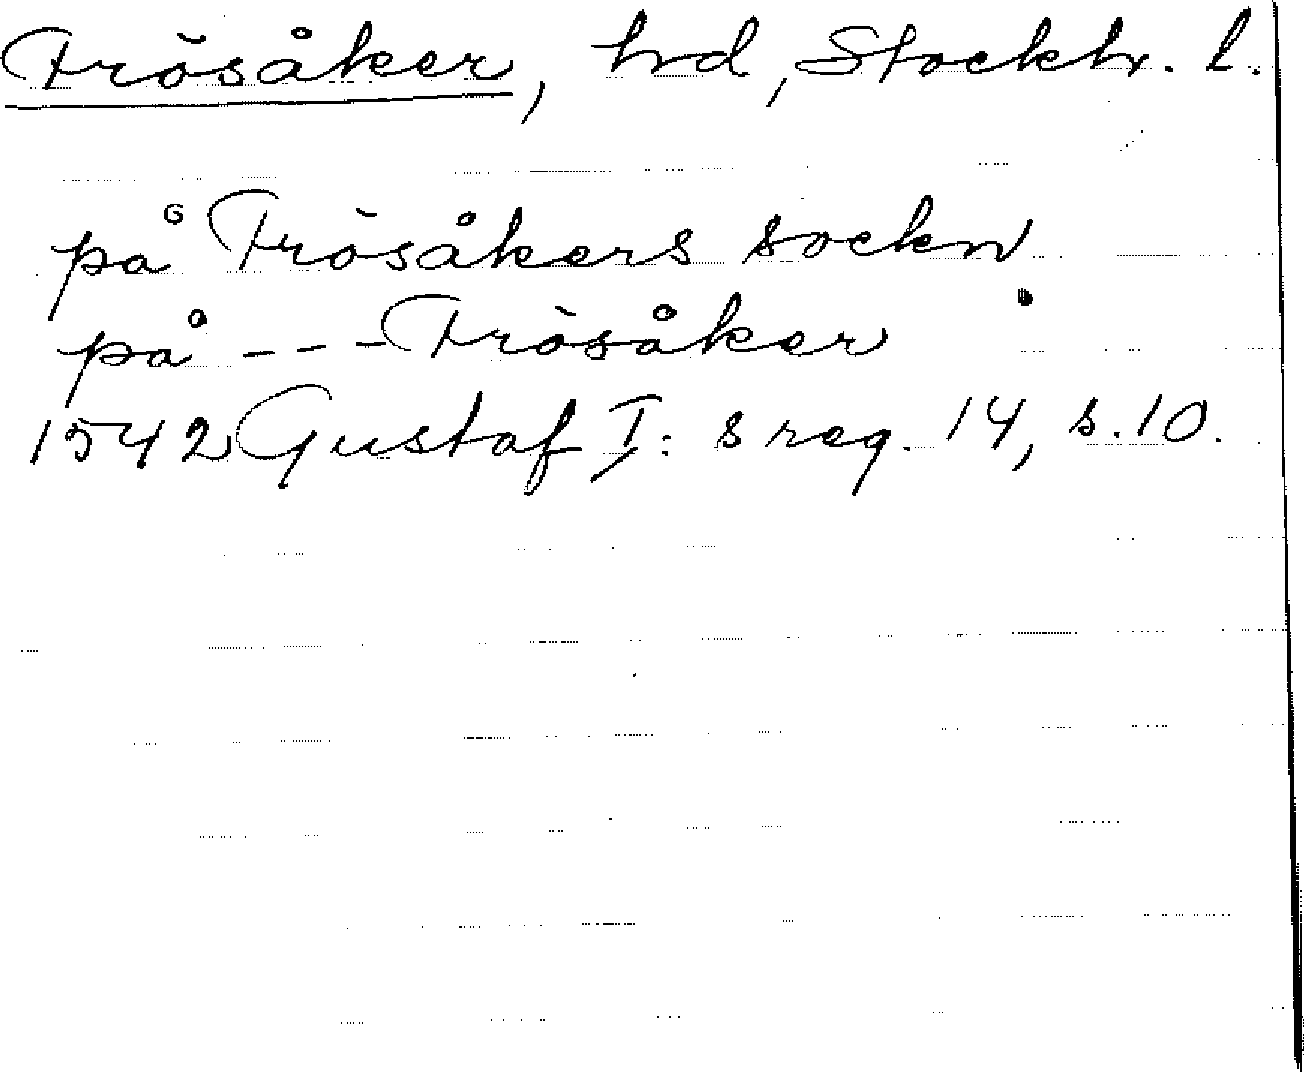 Frösåker, hrd, Stockh. l.
på Frösåkers sockn
på - - - Frösåker
1542 Gustaf I: s reg. 14, s. 10.